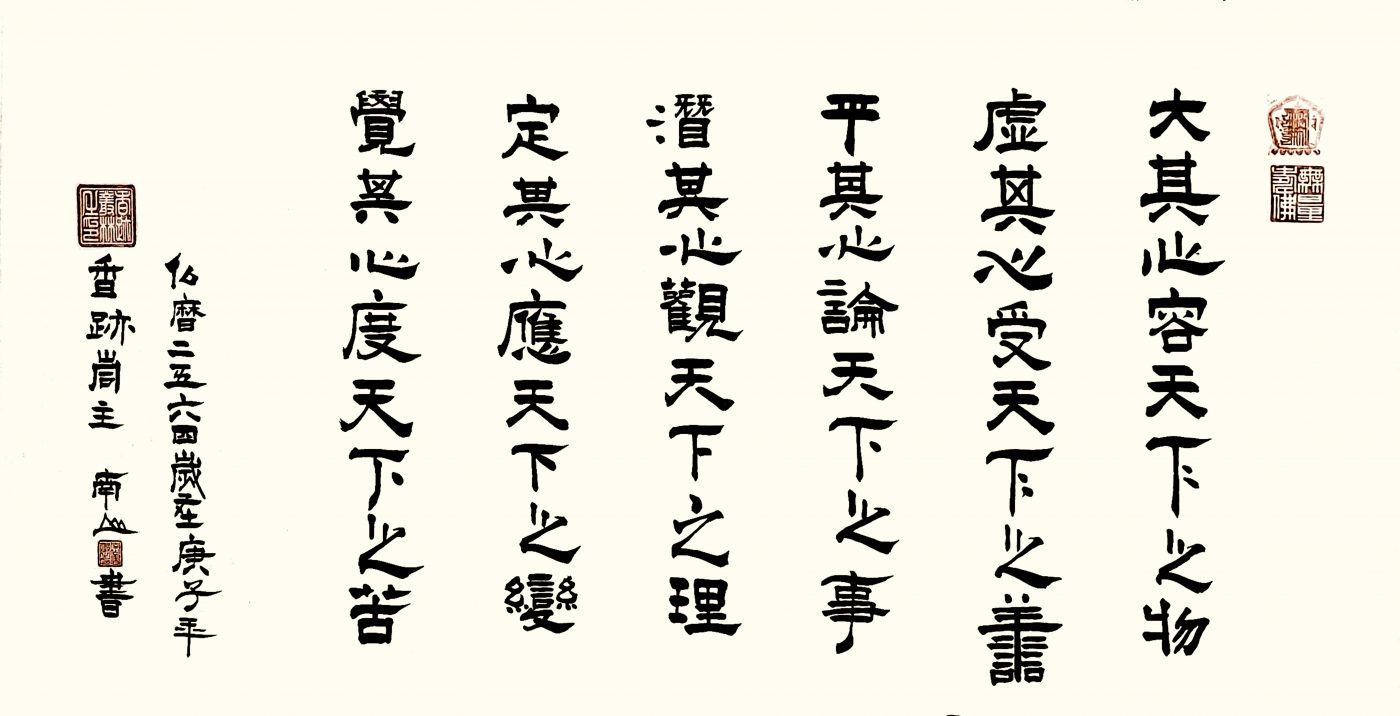 無量壽佛
大其心容天下之物
虛其心受天下之譱
平其心論天下之事
潛其心觀天下之理
定其心應天下之變
覺其心度天下之苦
仏曆二五六四歲在庚子年
香跡峝主 南山 書